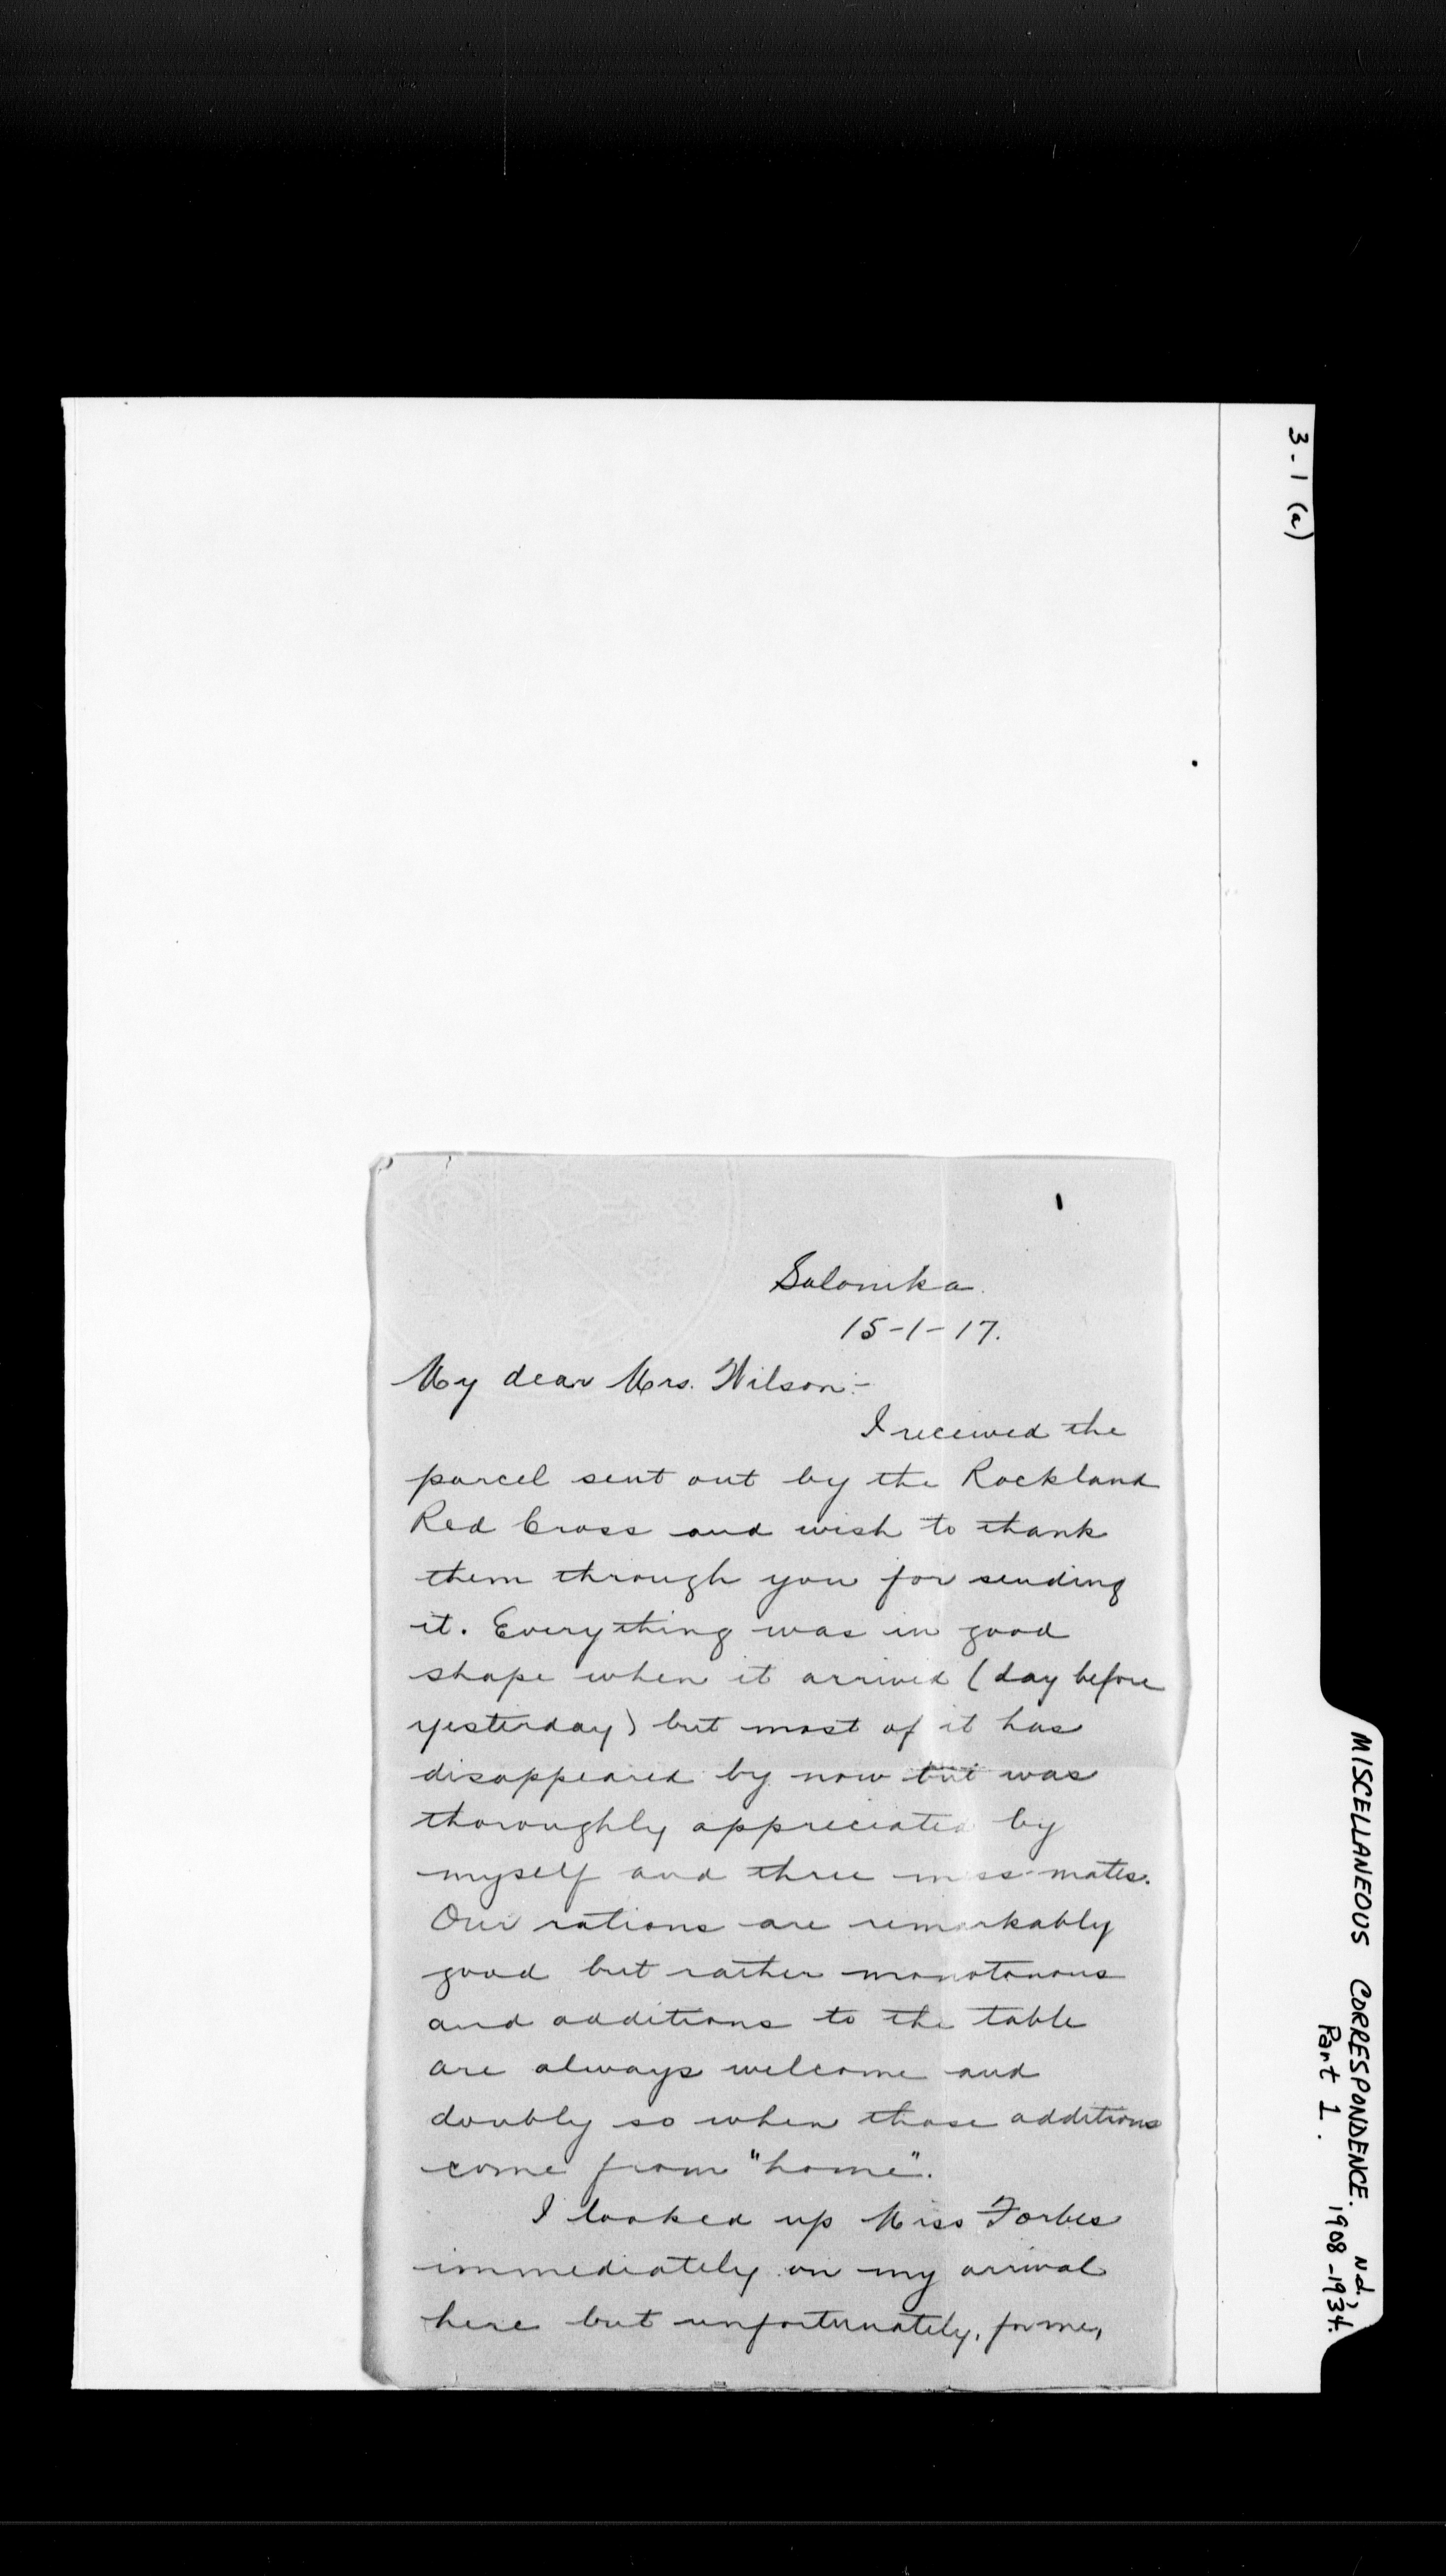 3-1 (a)
MISCELLANEOUS CORRESPONDENCE. Nd.,
1908-1934.
Part 1.
1
Salonika.
15-1-17.
My dear Mrs. Wilson:-
I received the
parcel sent out by the Rockland
Red Cross and wish to thank
them through you for sending
it. Everything was in good
shape when it arrived (day before
yesterday) but most of it has
disappeared by now but was
thoroughly appreciated by
myself and three mess-mates.
Our rations are remarkably
good but rather monotonous
and additions to the table
are always welcome and
doubly so when those additions
come from "home".
I looked up Miss Forbes
immediately on my arrival
here but unfortunately, for me,